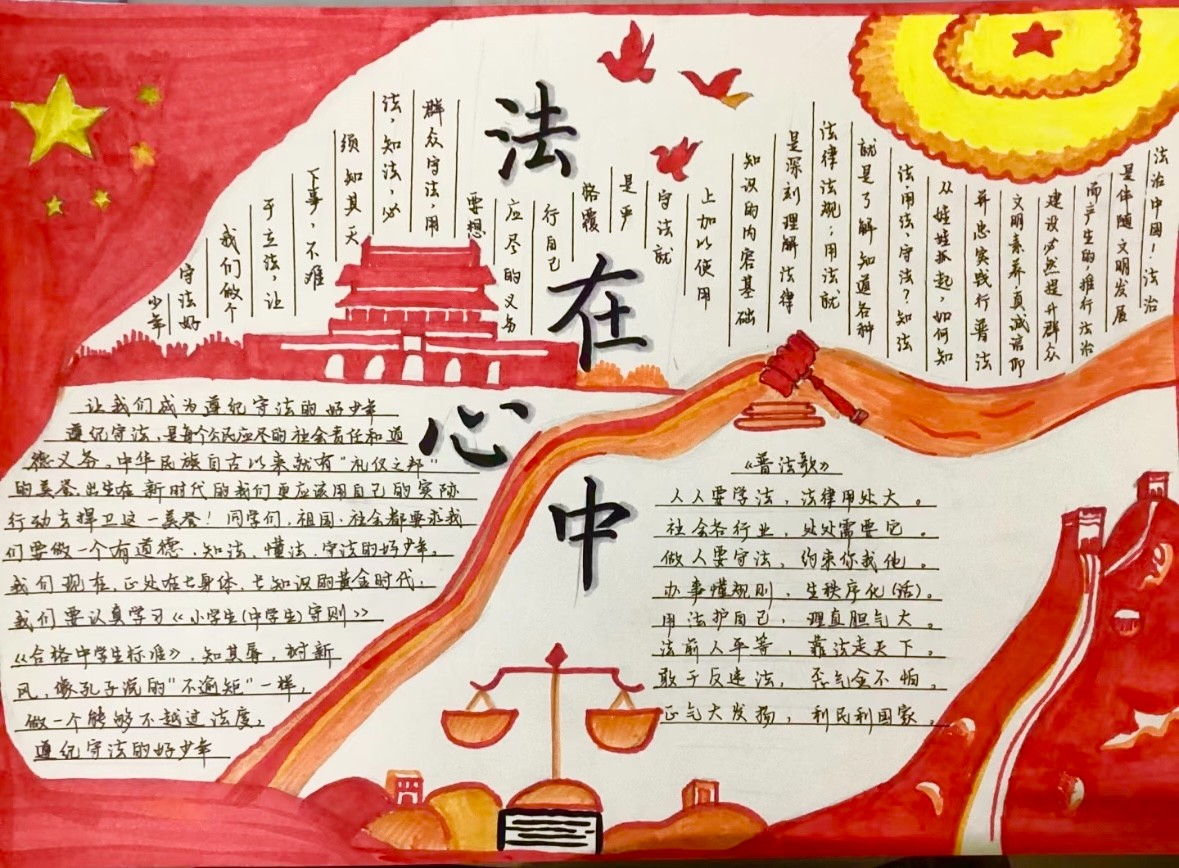 法在心中
法治中国！法治
是伴随文明发展
而产生的，推行法治
建设必然提升群众
文明素养真诚信仰
并忠实践行普法
从娃娃抓起，如何知
法用法守法？知法
就是了解知道各种
法律法规；用法就
是深刻理解法律
知识的内容基础
上加以使用
守法就
是严
格覆
行自己
应尽的义务
要想
群众守法，用
法，知法，必
须知其天
下事，不难
于立法，让
我们做个
守法好
少年
让我们成为遵纪守法的好少年
遵纪守法，是每个公民应尽的社会责任和道
德义务。中华民族自古以来就有"礼仪之邦"
的美誉。出生在新时代的我们更应该用自己的实际
行动去捍卫这一美誉！同学们，祖国、社会都要求我
们要做一个有道德、知法、懂法、守法的好少年。
我们现在，正处在长身体、长知识的黄金时代，
我们要认真学习《小学生(中学生)守则》
《合格中学生标准》，知其辱，树新
风，像孔子说的"不逾矩"一样，
做一个能够不越过法度，
遵纪守法的好少年
《普法歌》
人人要学法，法律用处大。
社会各行业，处处需要它。
做人要守法，约束你我他。
办事懂规则，生秩序化(活)。
用法护自己，理直胆气大。
法前人平等，靠法走天下。
敢于反违法，歪气全不怕。
正气大发扬，利民利国家。